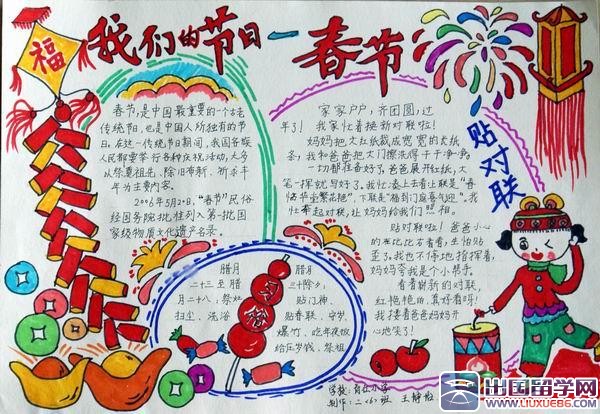 福
我们的节日—春节
春节,是中国最重要的一个古老
传统节日,也是中国人所独有的节
日。在这一传统节日期间,我国各族
人民都要举行各种庆祝活动,大多
以祭奠祖先、除旧布新、祈求丰
年为主要内容。
2006年5月20日,“春节”民俗
经国务院批准列入第一批国
家级物质文化遗产名录。
家家户户,齐团圆,过
年了!我家忙着换新对联啦!
妈妈把大红纸裁成宽宽的大纸
条,我和爸爸把大门擦洗得干干净净,
一切都准备好了。爸爸展开红纸,大
笔一挥就写好了。我忙凑上去看
让妈妈给我们照相。
贴对联啦!爸爸小心
妈妈夸我是个小帮手。
看着崭新的对联,
红艳艳的,真好看呀!
我搂着爸爸妈妈开
心地笑了!
贴对联
腊月
二十三至腊
月二十八:祭灶
扫尘、洗浴
冰糖
腊月
三十除夕:
贴门神、
贴春联、守岁、
爆竹、吃年夜饭
给压岁钱、祭祖
制作:二<6>班 王静
出国留学网
WWW.LIUXUE86.COM